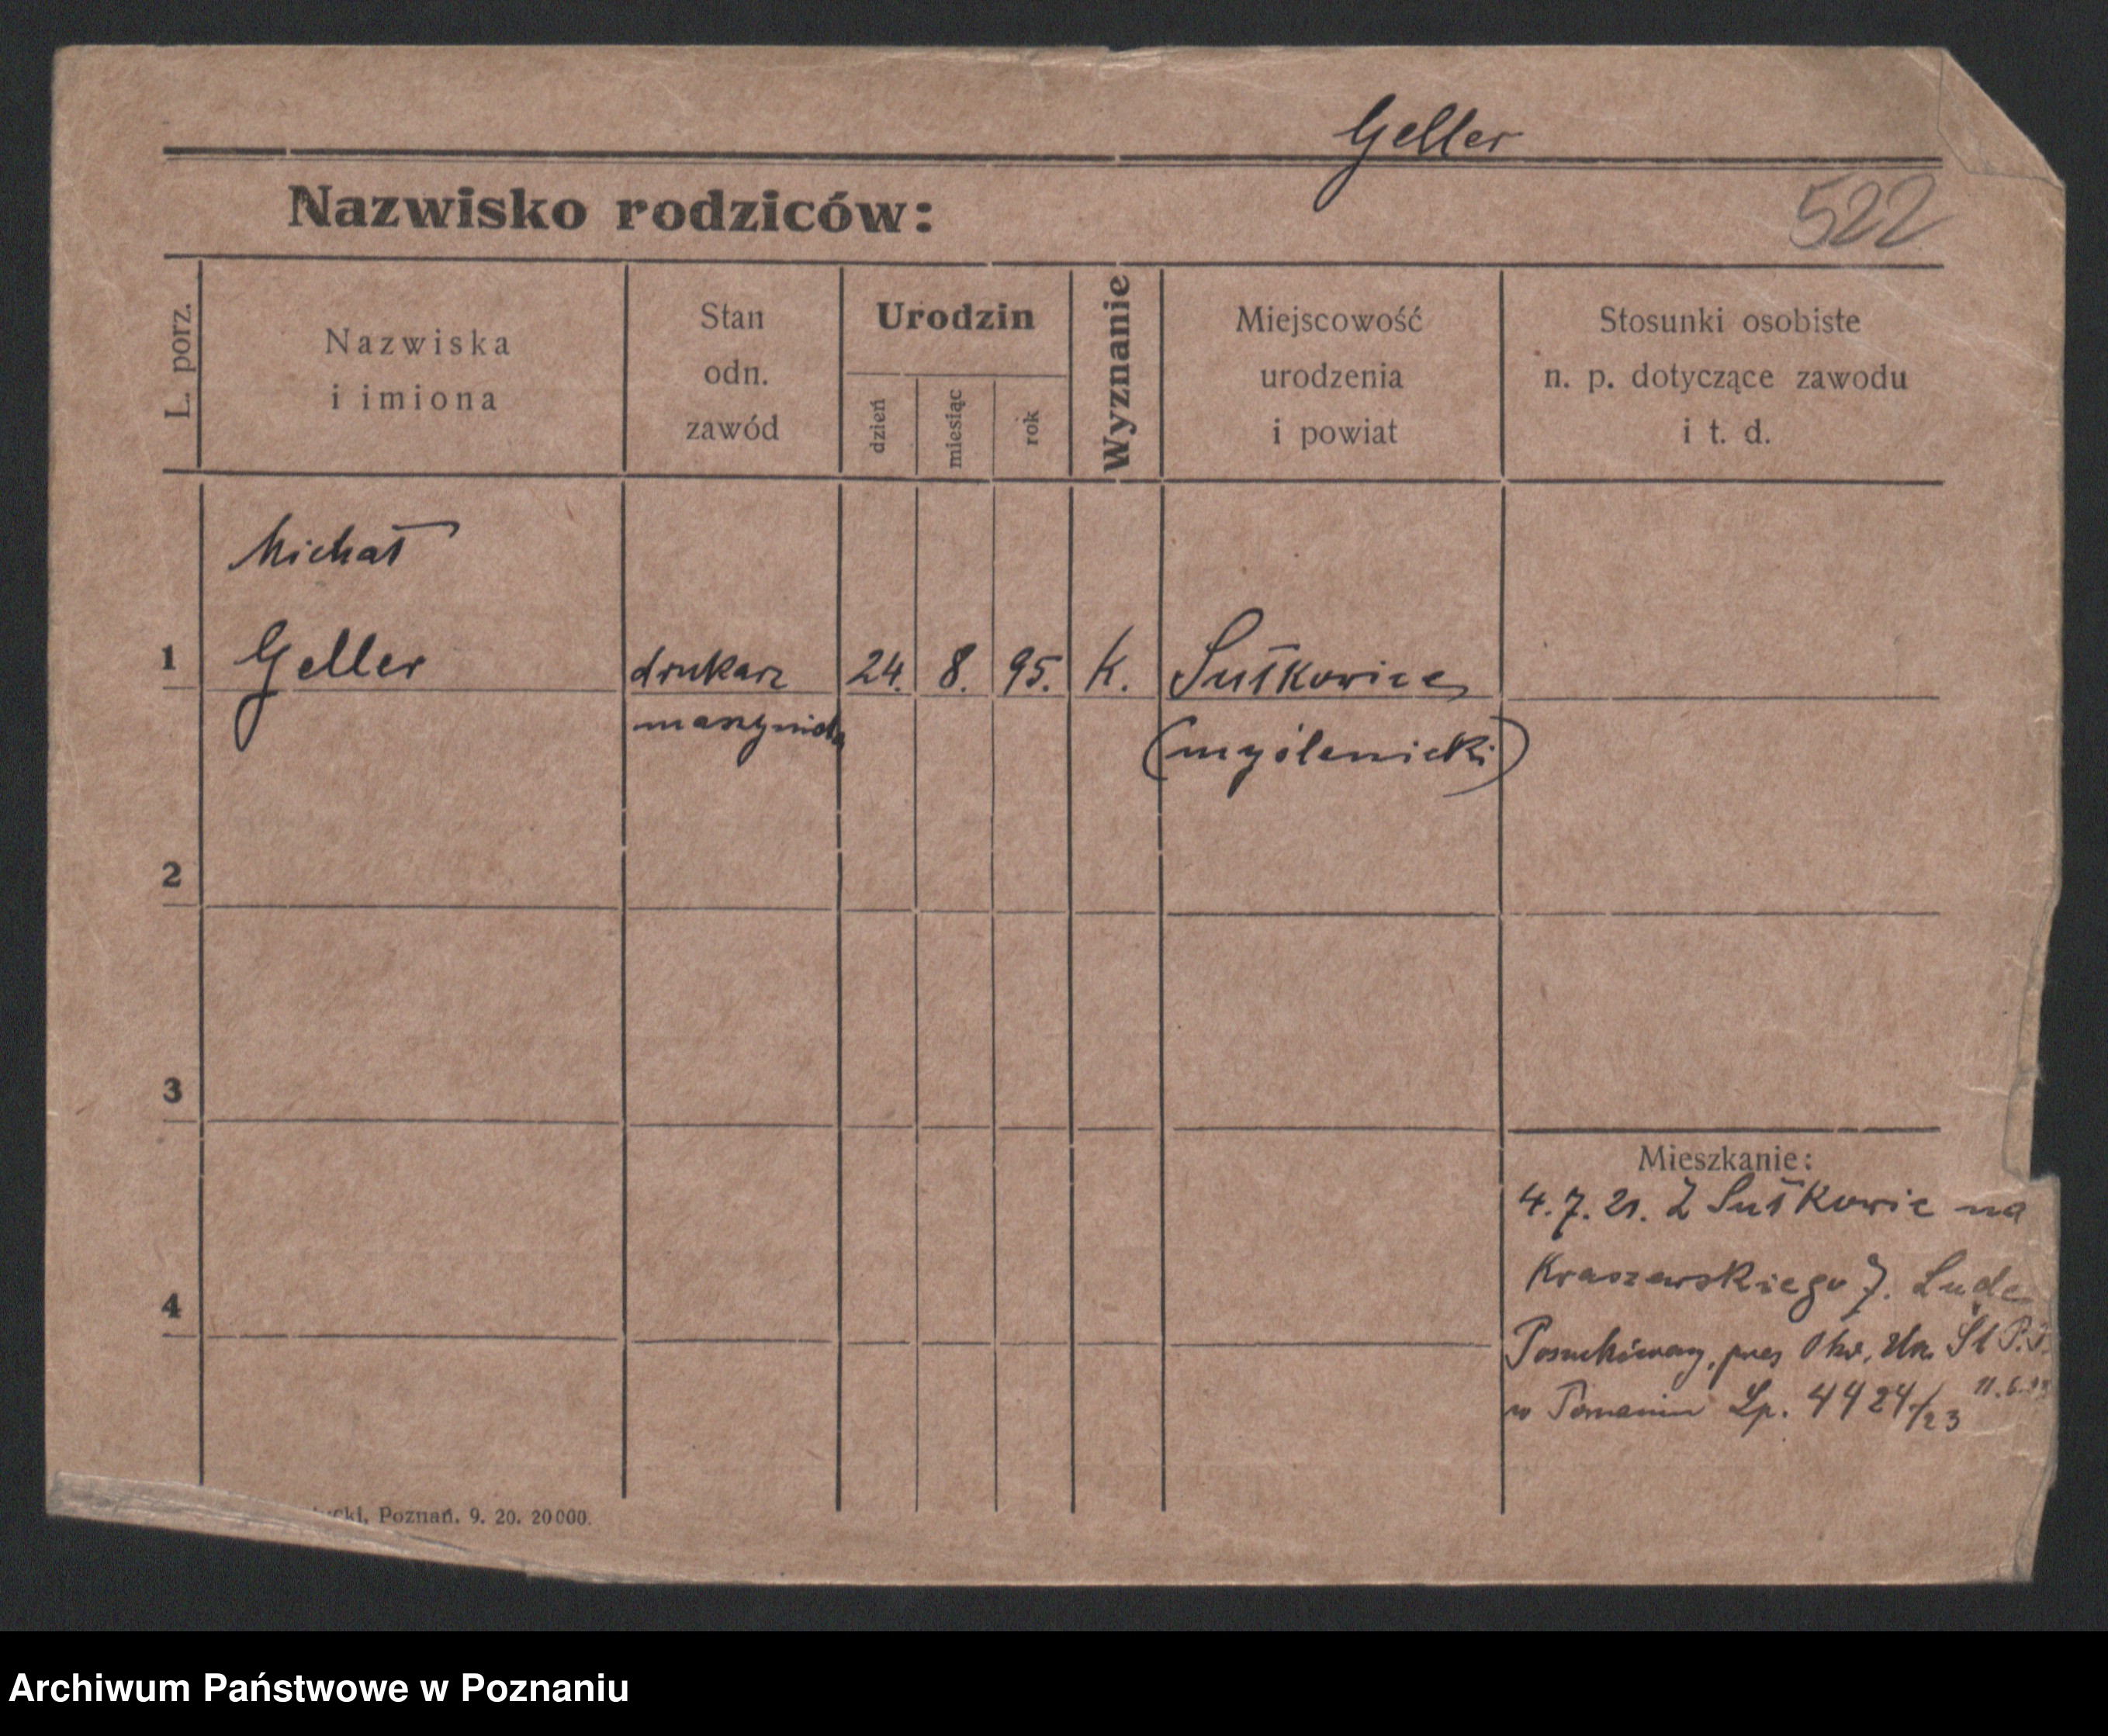 Geller
Nazwisko rodziców:
522
L. porz.
Nazwiska
i imiona
Stan
odn.
zawód
Urodzin
dzień
miesiąc
rok
Wyznanie
Miejscowość
urodzenia
i powiat
Stosunki osobiste
n. p. dotyczące zawodu
i t. d.
Michał
1 Geller drukarz 24. 8. 95. K. Sułkowice
(myślenicki)
2
3
Mieszkanie:
4. 7. 21. Z Sułkowic na
Kraszewskiego 7.
4
w Poznaniu Lp. 4424/23
Poznań. 9. 20. 20000.
Archiwum Państwowe w Poznaniu